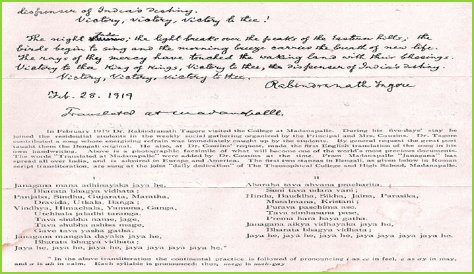 dispenser of India's destiny.
Victory, Victory, Victory to thee!
The night fades; the light breaks over the peaks of the Eastern hills; the
birds begin to sing and the morning breeze carries the breath of new life.
The rays of thy mercy have touched the waking land with their blessings.
Victory to thee King of Kings, Victory to thee, the dispenser of India's destiny.
Victory, Victory, Victory to thee.
Rabindranath Tagore
Feb. 28. 1919
Translated at Madanapalle
In February 1919 Dr. Rabindranath Tagore visited the College at Madanapalle. During his five-days' stay he
joined the residential students in the weekly social gathering organised by the Principal and Mrs. Cousins. Dr. Tagore
contributed a song whose energising refrain was immediately caught up by the students. By general request the great poet
taught them the Bengali original. He also, at Dr. Cousins' request, made the first English translation of the song in his
own handwriting. This is a photographic facsimile of what will become one of the world's most precious documents.
The words "Translated at Madanapalle" were added by Dr. Cousins at the time. From Madanapalle "Janagana" has
spread all over India, and is admired in Europe and America. The first two stanzas in Bengali, as given below in Roman
script transliteration, are sung at the joint "daily dedication" of The Theosophical College and High School, Madanapalle.
I
Janagana mana adhinayaka jaya he,
Bharata bhagya vidhata;
Punjaba, Sindhu, Gujarata, Maratha,
Dravida, Utkala, Banga;
Vindhya, Himachala, Yamuna, Ganga,
Uchhala jaladhi taranga.
Tava shubha name, jage,
Tava shubha ashisa mage,
Gave tava yasha gatha;
Janagana mangala dayaka jaya he,
Bharata bhagya vidhata;
Jaya he, jaya he, jaya he, jaya jaya jaya, jaya he.*
II
Aharaha tava ahvana pracharita,
Suni tava udara vani;
Hindu, Bauddha, Sikha, Jaina, Parasika,
Musalmana, Kristani;
Purava paschima ase,
Tava simhasana pase,
Prema hara haya gatha.
Janagana aikya vidhayaka jaya he,
Bharata bhagya vidhata;
Jaya he, jaya he, jaya he, jaya jaya jaya, jaya he.
* In the above transliteration the continental practice is followed of pronouncing i as ee in feel, e as ay in may,
and ai as ai in aisle. Each syllable is pronounced: thus, mage is mah-gay.